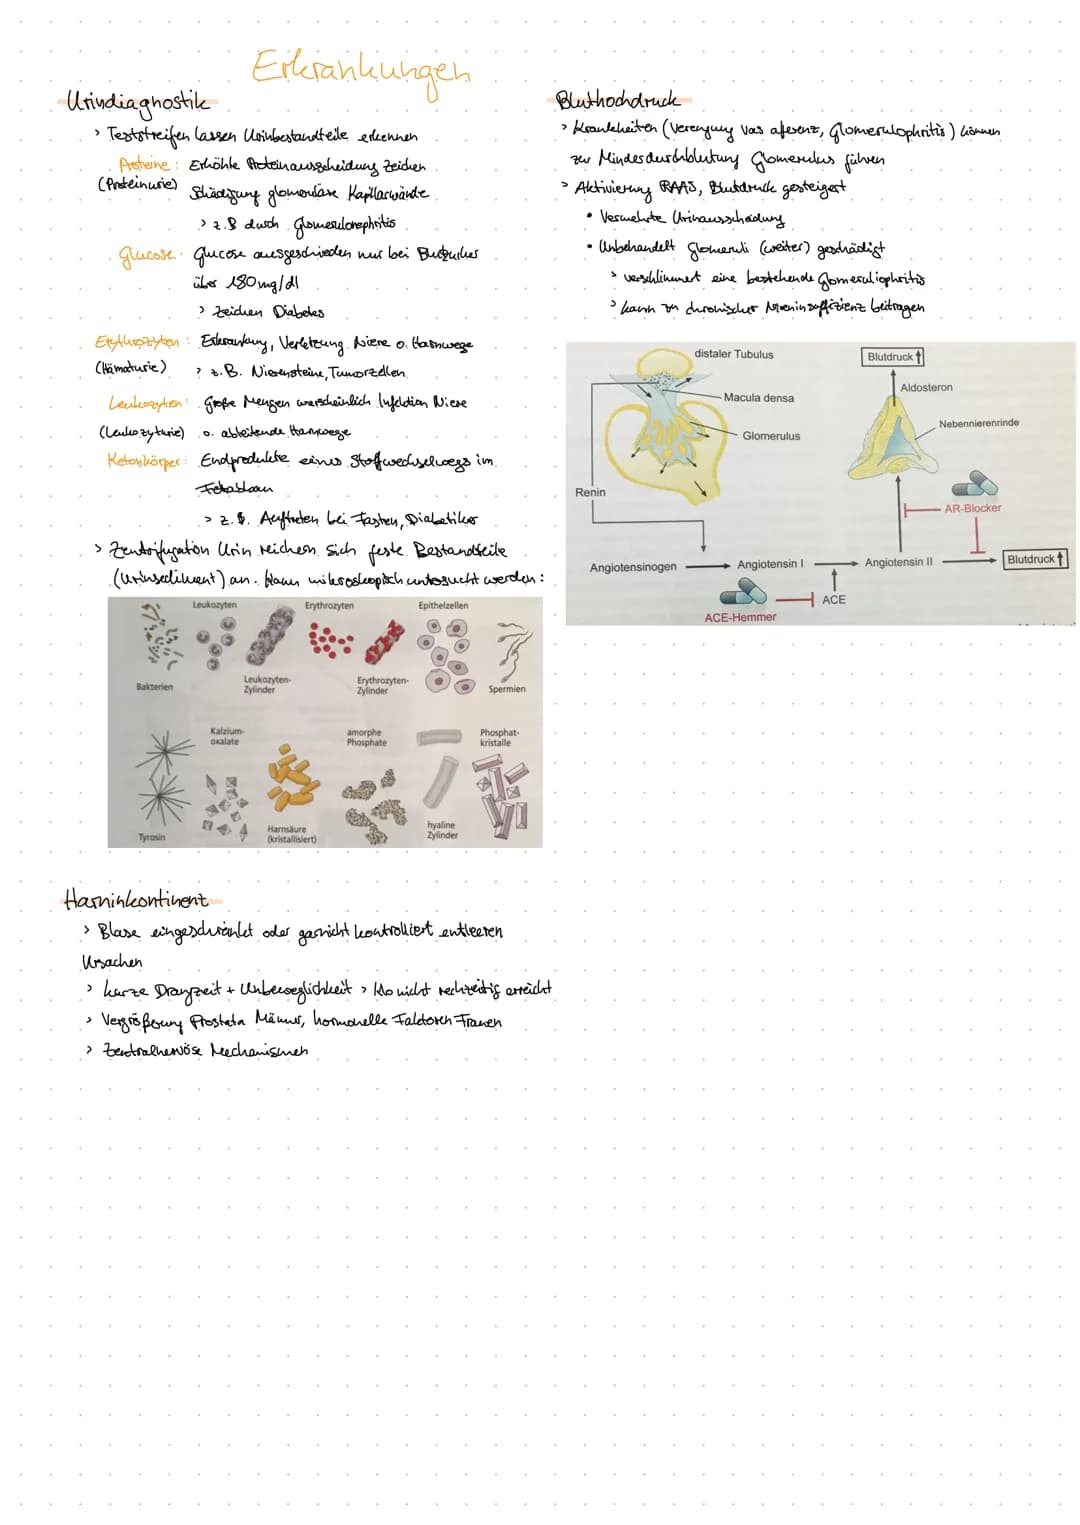 Erkrankungen
Urindiagnostik
> Teststreifen lassen Urinbestandteile erkennen
Proteine: Erhöhte Proteinausscheidung Zeichen
(Proteinurie) Schädigung glomerulare Kapillarwände
> z.B durch Glomerulonephritis
Glucose: Glucose ausgeschieden nur bei Blutzucker
über 180mg/dl
> Zeichen Diabetes
Erythrozyten: Erkrankung, Verletzung Niere o. Harnwege
(Hämaturie) > z.B. Nierensteine, Tumorzellen
Leukozyten: große Mengen warscheinlich Infektion Niere
(Leukozyturie) o. ableitende Harnwege
Ketonkörper: Endprodukte eines Stoffwechselwegs im
> z.B. Auftreten bei Fasten, Diabetiker
> Zentrifugation Urin reichern sich feste Bestandteile
(Urinsediment) an. Kann mikroskopisch untersucht werden:
Leukozyten Erythrozyten Epithelzellen
Bakterien
Leukozyten-
Zylinder
Erythrozyten-
Zylinder
Spermien
Kalzium-
oxalate
amorphe
Phosphate
Phosphat-
kristalle
Tyrosin
Harnsäure
(kristallisiert)
hyaline
Zylinder
Harninkontinent
> Blase eingeschränkt oder garnicht kontrolliert entleeren
Ursachen
> kurze Drangzeit + Unbeweglichkeit > Klo nicht rechzeitig erreicht
> Vergrößerung Prostata Männer, hormonelle Faktoren Frauen
> Zentralnervöse Mechanismen
Bluthochdruck
> Krankheiten (Verengung Vas aferenz, Glomerulophritis) können
zu Minderdurchblutung Glomerulus führen
> Aktivierung RAAS, Blutdruck gesteigert
• Vermehrte Urinausscheidung
• Unbehandelt Glomeruli (weiter) geschädigt
> verschlimmert eine bestehende Glomeruliophritis
> kann zu chronischer Niereninsuffizienz beitragen
distaler Tubulus
Blutdruck↑
Macula densa
Aldosteron
Glomerulus
Nebennierenrinde
Renin
AR-Blocker
Angiotensinogen Angiotensin I Angiotensin II Blutdruck↑
ACE
ACE-Hemmer